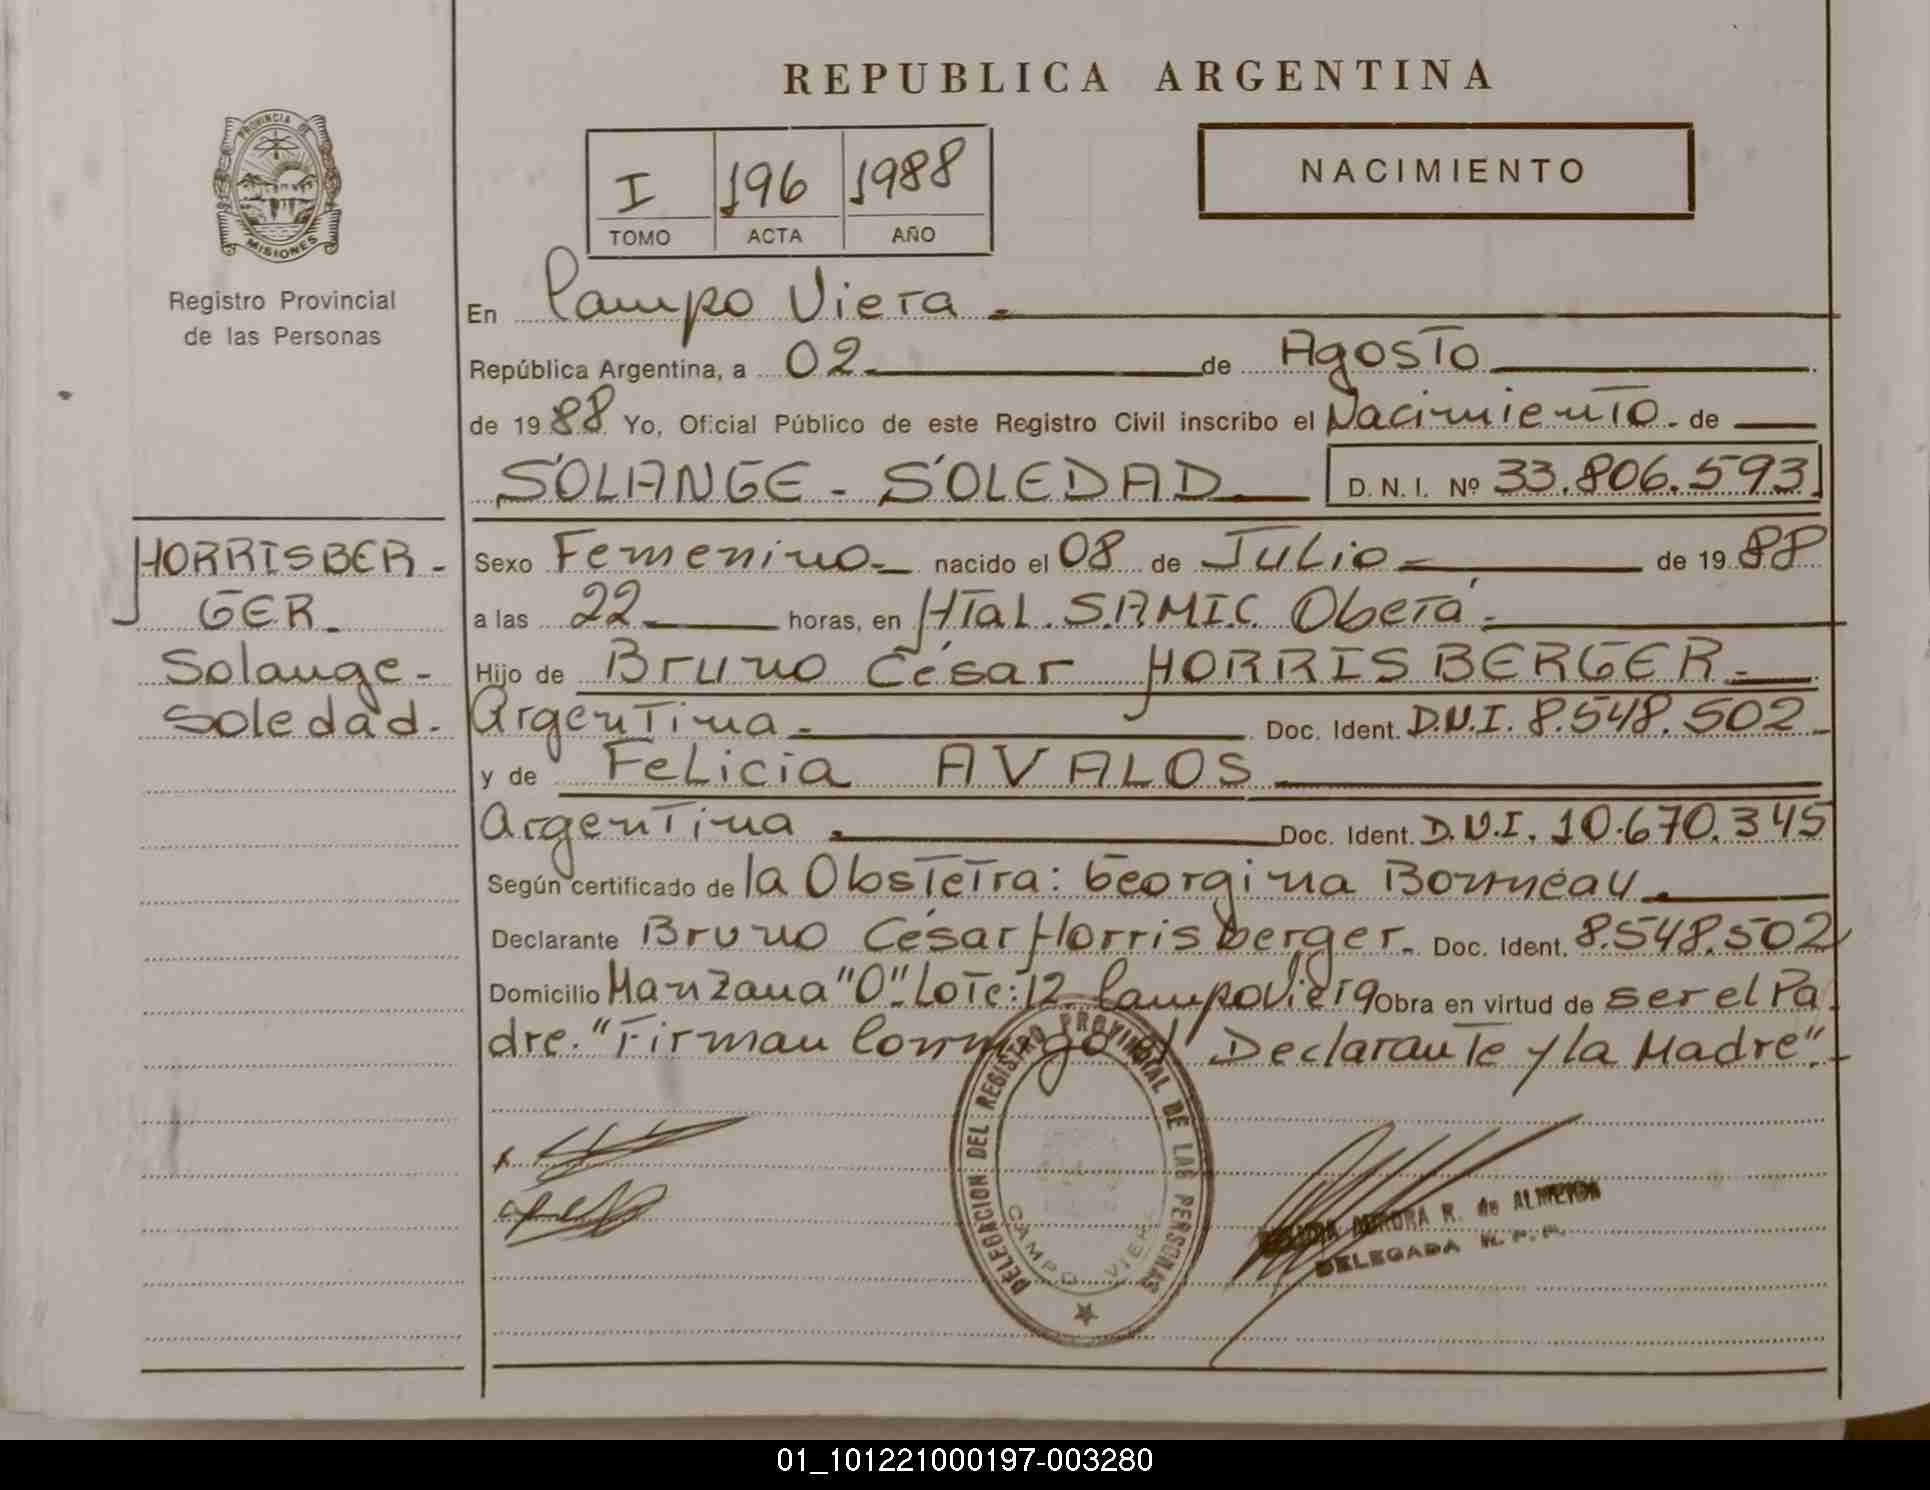 REPUBLICA ARGENTINA
PROVINCIA DE
MISIONES
Registro Provincial
de las Personas
I 196 1988
TOMO ACTA AÑO
NACIMIENTO
En Campo Viera.
República Argentina, a 02 de Agosto
de 1988 Yo, Oficial Público de este Registro Civil inscribo el Nacimiento. de
SOLANGE - SOLEDAD D.N.I. Nº 33.806.593
HORRISBER-
GER.
Solange-
Soledad.
Sexo Femenino. nacido el 08 de Julio de 1988
a las 22 horas, en Htal. S.A.M.I.C. Oberá.
Hijo de Bruno César HORRISBERGER.
Argentina. Doc. Ident. D.N.I. 8.548.502
y de Felicia AVALOS
Argentina. Doc. Ident. D.N.I. 10.670.345
Según certificado de la Obstetra: Georgina Bonneau.
Declarante Bruno César Horrisberger. Doc. Ident. 8.548.502
Domicilio Manzana "O" Lote: 12 Campo Viera Obra en virtud de ser el Pa
dre. "Firman Conmigo el Declarante y la Madre".
DELEGACION DEL REGISTRO PROVINCIAL DE LAS PERSONAS
CAMPO VIERA
R. de ALMEIDA
DELEGADA R.P.P.
01_101221000197-003280